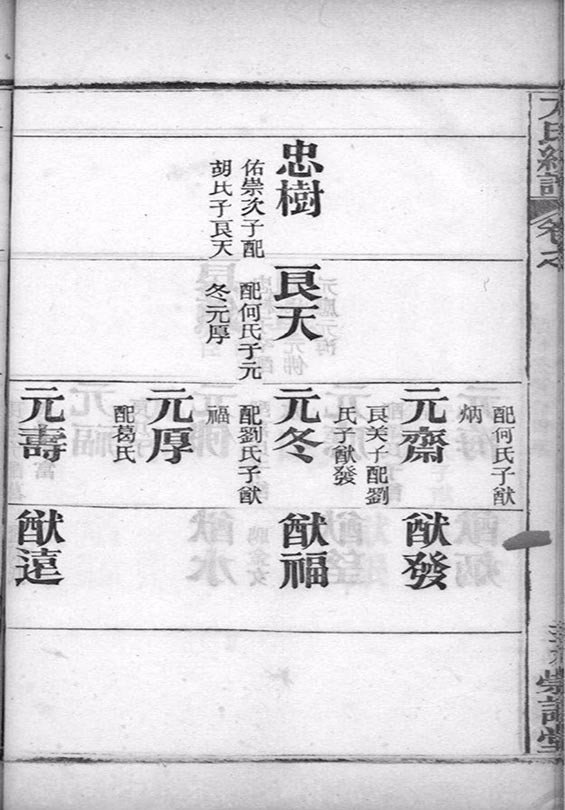 忠樹
佑崇次子配
胡氏子艮天
艮天
配何氏子元
冬元厚
配何氏子猷
炳
元齋
艮美子配劉
氏子猷發
元冬
配劉氏子猷
福
元厚
配葛氏
元壽
猷發
猷福
猷遠